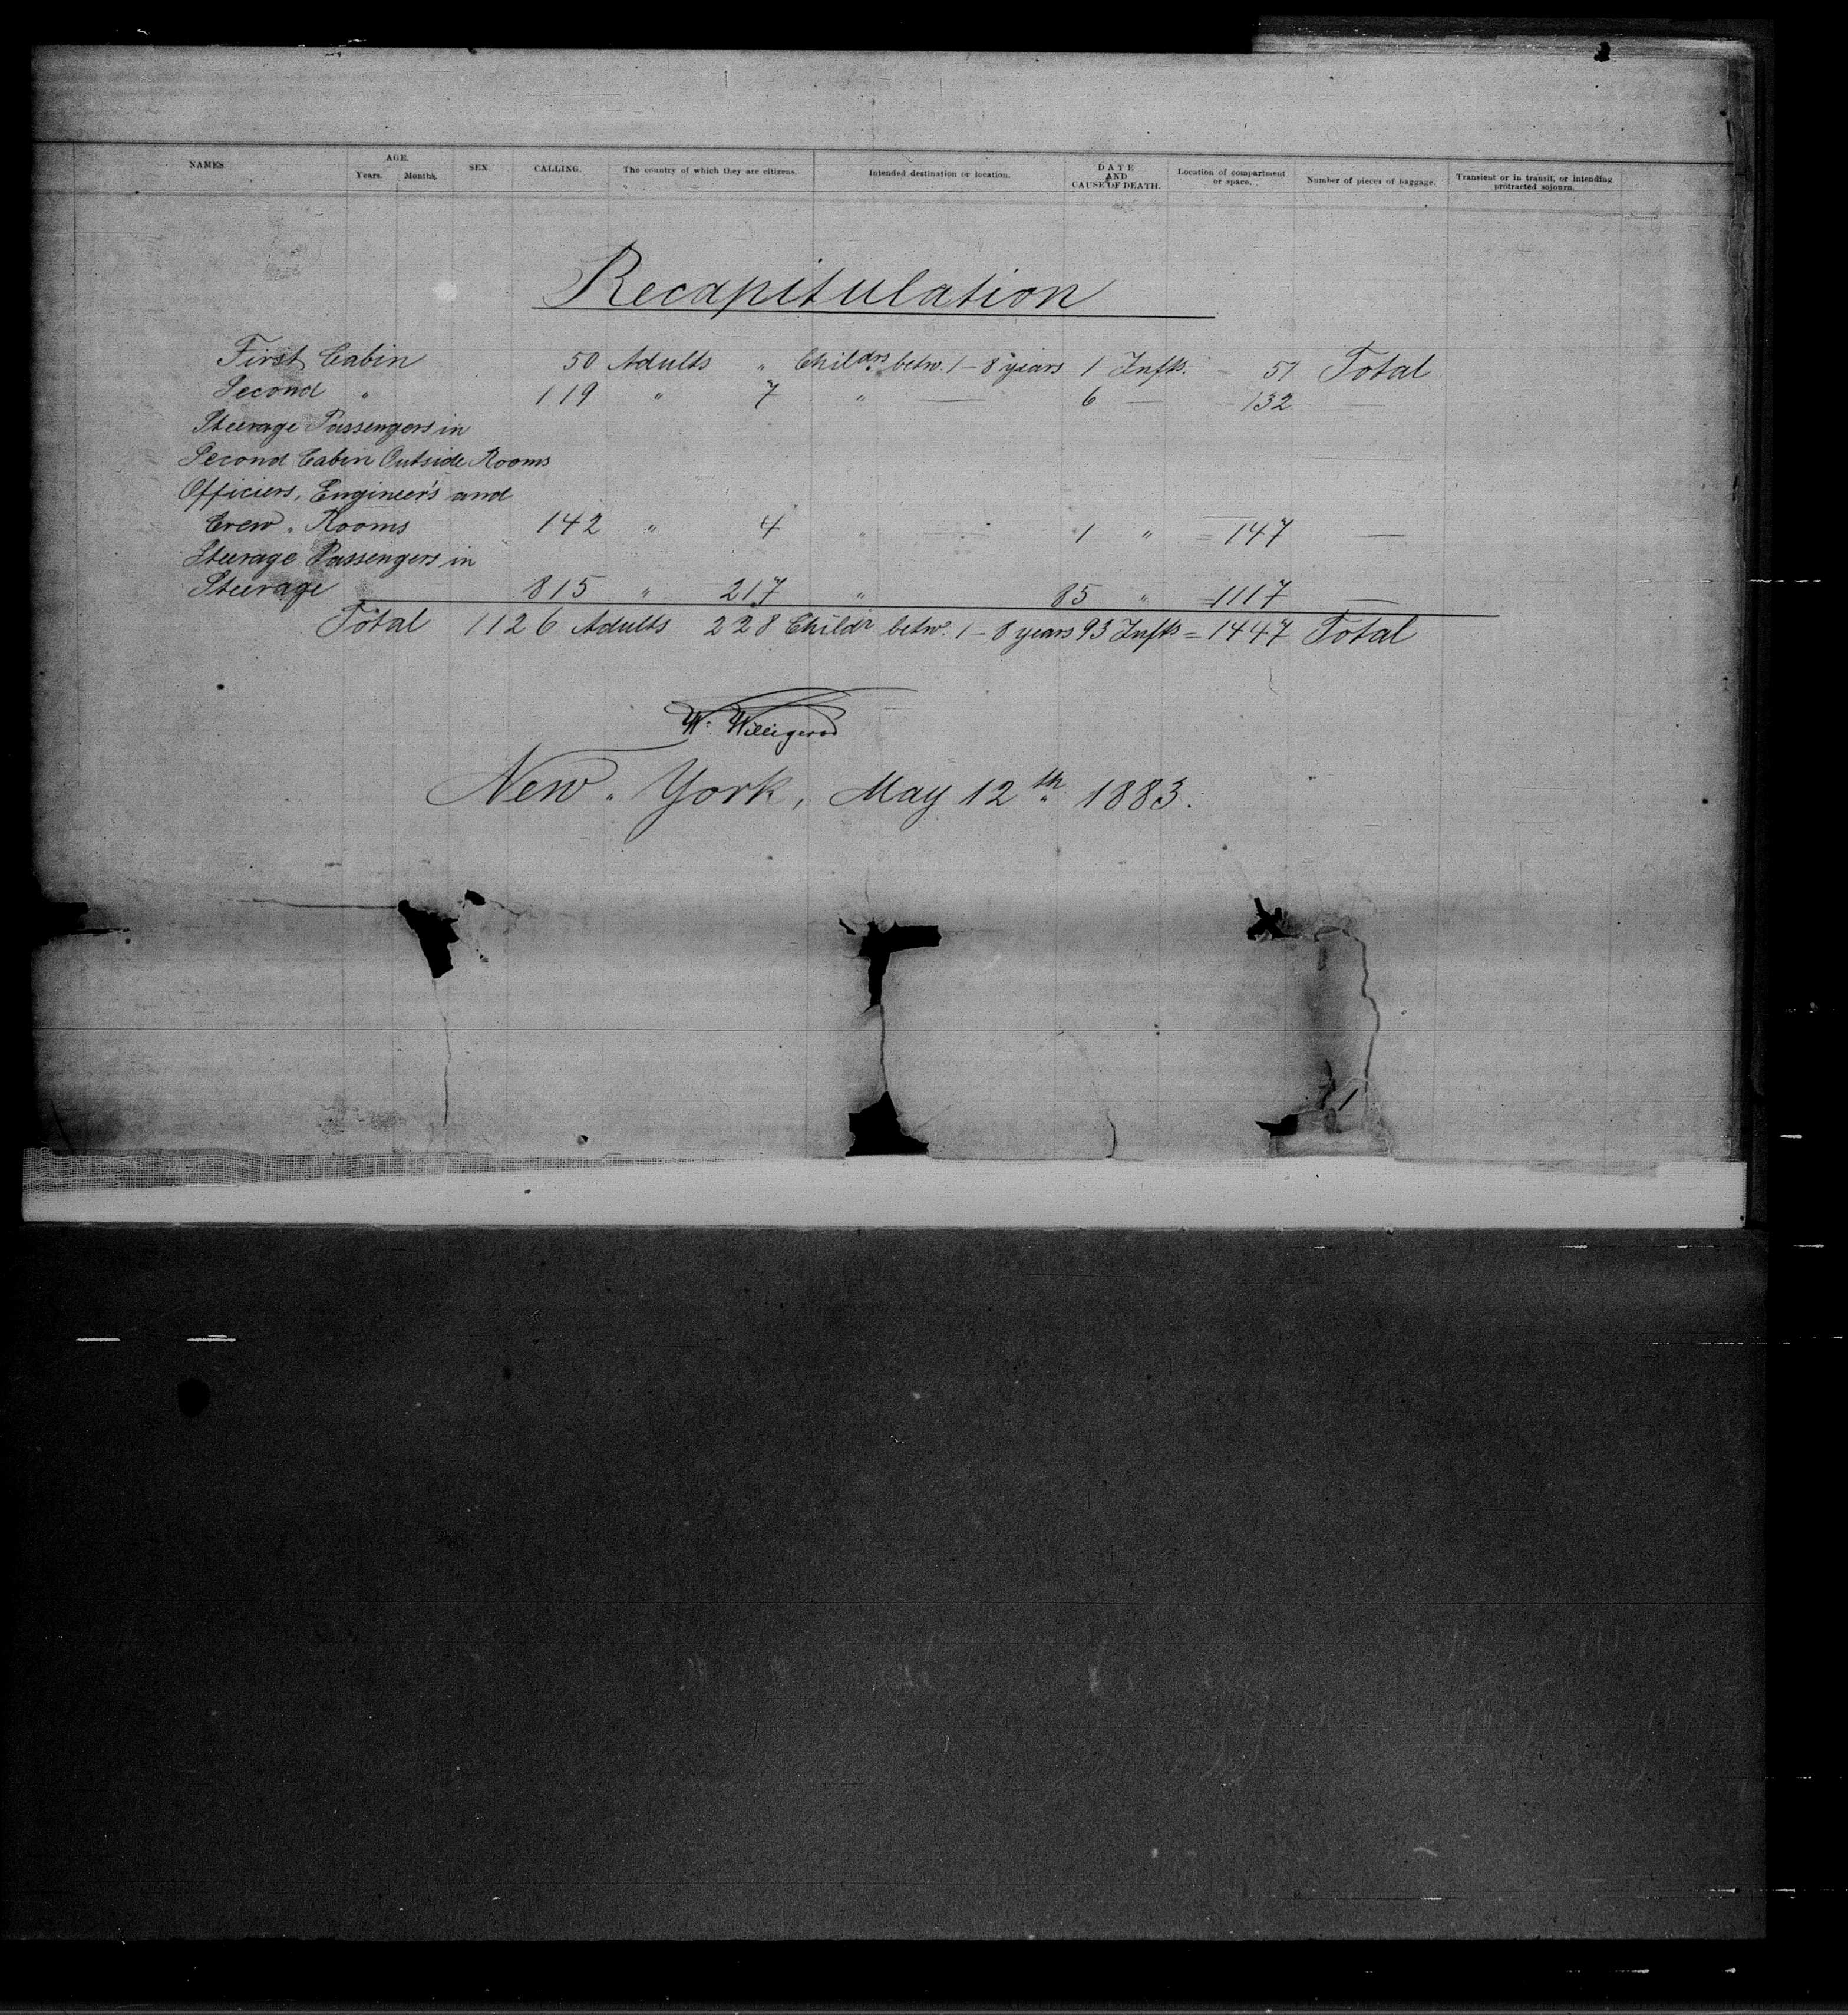 NAMES. AGE. Years. Months. SEX. CALLING. The country of which they are citizens. Intended destination or location. DATE AND CAUSE OF DEATH. Location of compartment or space. Number of pieces of baggage. Transient or in transit, or intending protracted sojourn.
Recapitulation
First Cabin 50 Adults " Childrs betw. 1 – 8 years 1 Infts. – 51 Total
Second " 119 " 7 " — 6 — – 132 —
Steerage Passengers in
Second Cabin Outside Rooms
Officiers, Engineer's and
Crew " Rooms 142 " 4 " — 1 " = 147 —
Steerage Passengers in
Steerage 815 " 217 " 85 " 1117 —
Total 1126 Adults 228 Childr betw. 1 – 8 years 93 Infts = 1447 Total
W. Willigerod
New " York, May 12th 1883.